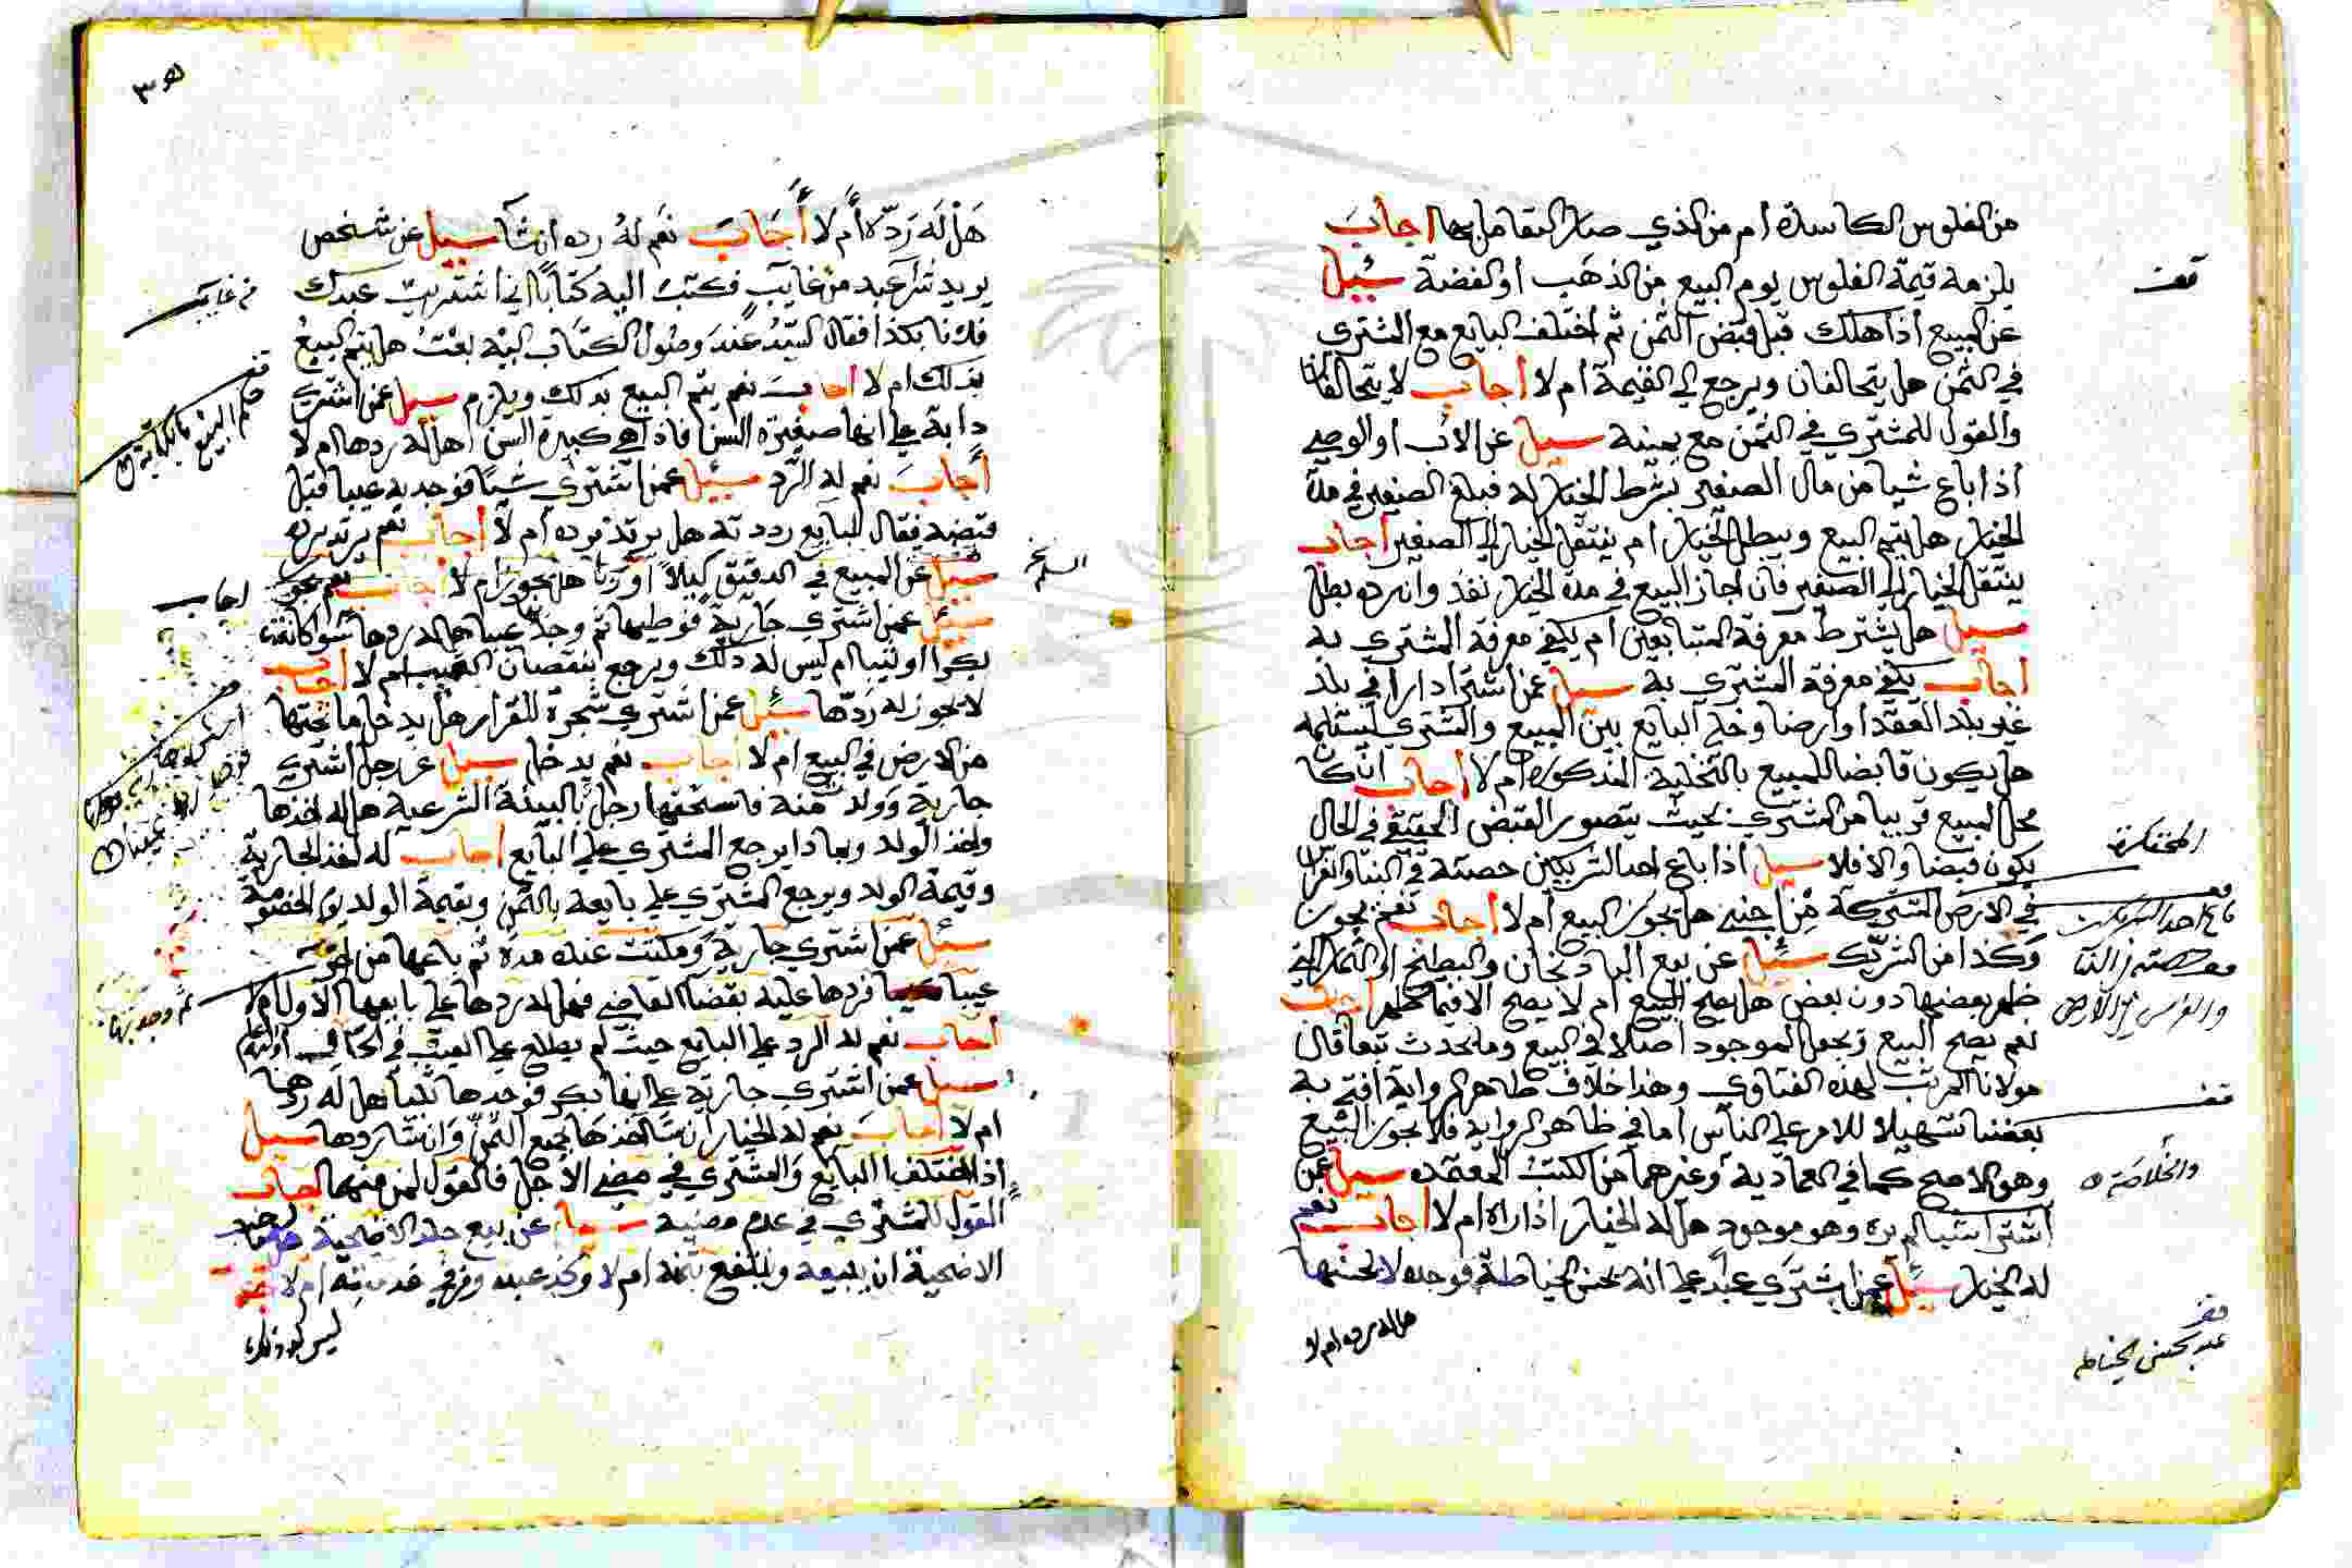 من الفلوس الكاسدة أم من الذي صار التعامل بها اجاب
يلزمه قيمة الفلوس يوم البيع من الذهب أو الفضة سئيل
عن المبيع اذا هلك قبل قبض الثمن ثم اختلف البايع مع المشتري
في الثمن هل يتحالفان ويرجع الي القيمة أم لا أجاب لا يتحالفان
والقول للمشتري في الثمن مع يمينه سيل عن الأب أو الوصي
اذا باع شيا من مال الصغير بشرط الخيار له فبلغ الصغير في مدة
الخيار هل يتم البيع ويبطل الخيار ام ينتقل الخيار الي الصغير أجاب
ينتقل الخيار الي الصغير فان أجاز البيع في مدة الخيار نفذ وان رده بطل
سيل هل يشترط معرفة المتبايعين أم يكفي معرفة المشتري به
اجاب يكفي معرفة المشتري به سيل عمن اشترا دارا في بلد
غير بلد العقد أو ارضا وخلى البايع بين المبيع والمشتري ليستلمه
هل يكون قابضا للمبيع بالتخلية المذكورة أم لا أجاب ان كان
محل المبيع قريبا من المشتري بحيث يتصور القبض الحقيقي في الحال
يكون قبضا والا فلا سيل اذا باع احد الشريكين حصته في البنا والغراس
في الارض المشتركة من اجنبي هل يجوز البيع أم لا أجاب نعم يجوز
وكذا من الشريك سئيل عن بيع الباذنجان والبطيخ او الثمار التي
ظهر بعضها دون بعض هل يصح البيع أم لا يصح الا فيما ظهر اجاب
نعم يصح البيع ويجعل الموجود أصلا في البيع وما يحدث تبعا قال
مولانا المرتب لهذه الفتاوي وهذا خلاف ظاهر الرواية أفتي به
بعضنا تسهيلا للامر علي الناس أما في ظاهر الرواية فلا يجوز البيع
وهو الاصح كما في العمادية وغيرهما من الكتب المعتمده سيل عمن
اشترا شيا لم يره وهو موجود هل له الخيار اذا راه ام لا أجاب نعم
له الخيار سيل عمن اشتري عبدا علي انه يحسن الخياطة فوجده لا يحسنها
هل له رده ام لا
قف
المحتكرة
باع احد الشريكين
حصته في البنا
والغراس في الارض
قف
والخلاصة
قف
عبد يحسن الخياطة
٣٥
هل له رده أم لا أجاب نعم له رده ان شا سيل عن شخص
يريد شرا عبد من غايب فكتب اليه كتابا اني اشتريت عبدك
فلانا بكذا فقال السيد عند وصول الكتاب اليه بعت هل يتم البيع
بذلك ام لا أجاب نعم يتم البيع بذلك ويلزم سيل عمن اشترى
دابة علي انها صغيرة السن فاذا هي كبيرة السن أهل له ردها ام لا
أجاب نعم له الرد سيل عمن اشتري شيا فوجد به عيبا قبل
قبضه فقال للبايع رددته هل يرتد برده أم لا أجاب نعم يرتد برده
سيل عن المبيع في الدقيق كيلا أو وزنا هل يجوز ام لا أجاب نعم يجوز
سيل عمن اشتري جارية فوطيها ثم وجد عيبا هل له ردها سوا كانت
بكرا او ثيبا ام ليس له ذلك ويرجع بنقصان العيب ام لا أجاب
لا يجوز له ردها سئيل عمن اشتري شجرة للقرار هل يدخل ما تحتها
من الارض في البيع ام لا أجاب نعم يدخل سيل عن رجل اشتري
جارية وولد منه فاستحقها رجل بالبينة الشرعية هل له اخذها
واخذ الولد وبماذا يرجع المشتري علي البايع أجاب له اخذ الجارية
وقيمة الولد ويرجع المشتري علي بايعه بالثمن وبقيمة الولد يوم الخصومة
سيل عمن اشتري جارية ومكثت عنده مدة ثم باعها من اخر
عيبا فردها عليه بقضا القاضي فهل له ردها علي بايعها الاول أم لا
أجاب نعم له الرد علي البايع حيث لم يطلع علي العيب
سيل عمن اشتري جارية علي انها بكر فوجدها ثيبا هل له ردها
ام لا أجاب نعم له الخيار ان شا اخذها بجميع الثمن وان شا ردها سيل
اذا اختلف البايع والمشتري في مضي الأجل فالقول لمن منهما أجاب
القول للمشتري في عدم مضيه سيل عن بيع جلد الاضحية
الاضحية ان يبيعه وينتفع بثمنه ام لا
ليس له ذلك
من غايب
قف
حكم البيع بالكتابة
السلم
اجاب
ثم وجد بها